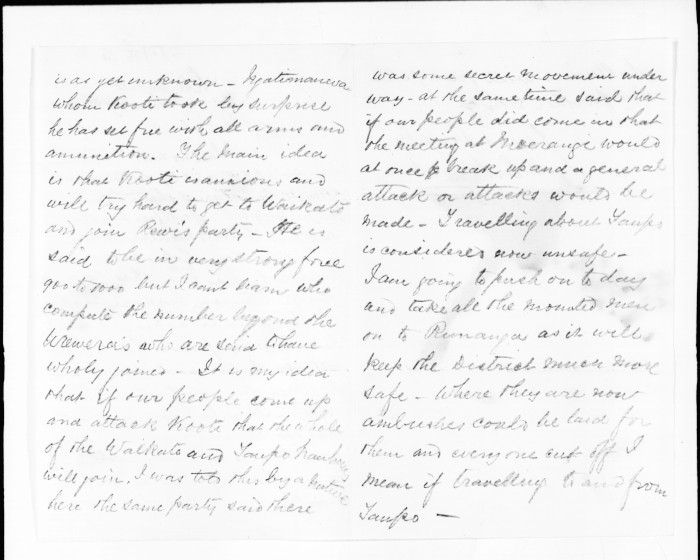 is as yet unknown -
whom Kooti took by surprise
he has set free with all arms and
amunition. The main idea
is that Kooti is anxious and
will try hard to get to Waikato
and join Rewis party - He is
said to be in very strong force
900 to 1000 but I cant learn who
compute the number beyond the
Urewera's who are said to have
wholy joined - It is my idea
that if our people come up
and attack Kooti that the whole
of the Waikato and Taupo
will join, I was told this by a Native
here the same party said there
was some secret movement under
way - at the same time said that
if our people did come in that
the meeting at Moerangi would
at once break up and a general
attack or attacks would be
made - Travelling about Taupo
is considered now unsafe -
I am going to push on to day
and take all the mounted men
on to Runanga as it will
keep the District much more
safe - Where they are now
ambushes could be laid for
them and everyone cut off I
mean if travelling to and from
Taupo -